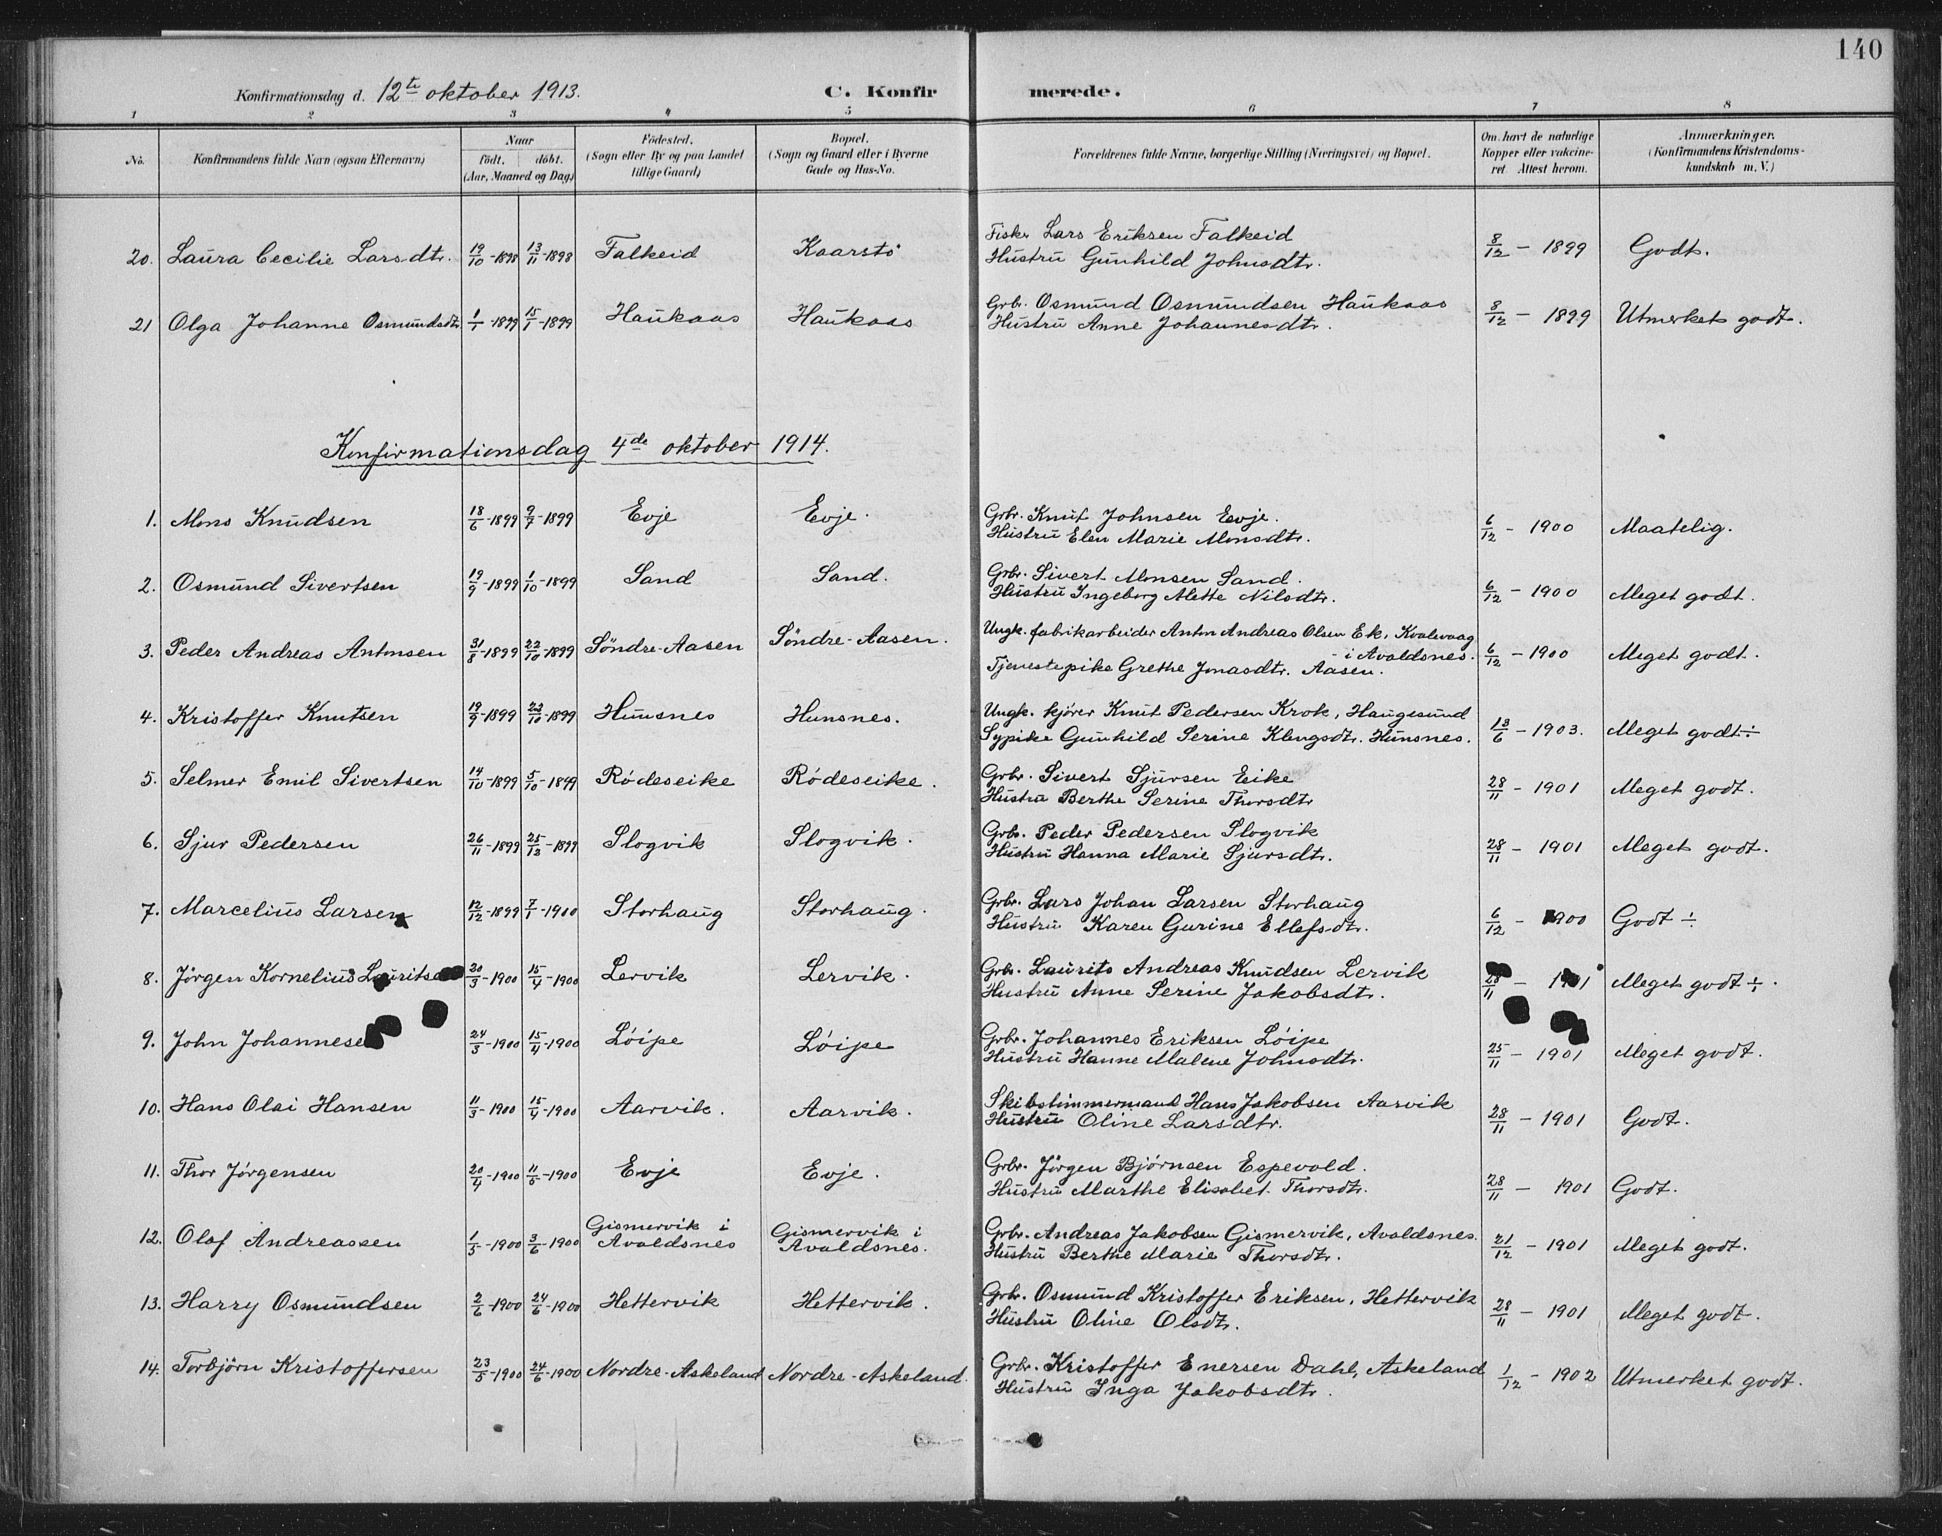 140
Konfirmationsdag d. 12te oktober 1913.
C. Konfirmerede.
1 2 3 4 5 6 7 8
No. Konfirmandens fulde Navn (ogsaa Efternavn) Naar født. døbt. (Aar, Maaned og Dag) Fødested. (Sogn eller By og paa Landet tillige Gaard) Bopæl. (Sogn og Gaard eller i Byerne Gade og Hus-No. Forældrenes fulde Navne, borgerlige Stilling (Næringsvei) og Bopæl. Om havt de naturlige Kopper eller vakcineret. Attest herom. Anmærkninger. (Konfirmandens Kristendomskundskab m. V.)
20. Laura Cecilie Larsdtr. 19/10-1898 13/11-1898 Falkeid Kaarstø Fisker Lars Eriksen Falkeid 8/12 - 1899 Godt.
Hustru Gunhild Johnsdtr.
21 Olga Johanne Osmundsdtr 1/1-1899 15/1-1899 Haukaas Haukaas Grbr. Osmund Osmundsen Haukaas 8/12 - 1899 Utmerket godt.
Hustru Anne Johannesdtr.
Konfirmationsdag 4de oktober 1914.
1. Mons Knudsen 18/6-1899 9/7-1899 Evje Evje. Grbr. Knut Johnsen Evje. 6/12 - 1900 Maatelig.
Hustru Elen Marie Monsdtr.
2. Osmund Sivertsen 19/9-1899 1/10-1899 Sand Sand. Grbr. Sivert Monsen Sand. 6/12 - 1900 Meget godt.
Hustru Ingeborg Alette Nilsdtr.
3. Peder Andreas Antonsen 31/8-1899 22/10-1899 Søndre-Aasen Søndre-Aasen. Ungk. fabrikarbeider Anton Andreas Olsen Ek, Kvalevaag i Avaldsnes. 6/12 - 1900 Meget godt.
Tjenestepike Grethe Jonasdtr. Aasen.
4. Kristoffer Knutsen 19/9-1899 22/10-1899 Hunsnes Hunsnes. Ungk. kjører Knut Pedersen Krok, Haugesund 13/6 - 1903. Meget godt ÷
Sypike Gunhild Serine Klengsdtr. Hunsnes.
5. Selmer Emil Sivertsen 14/10-1899 5/10-1899 Rødeseike Rødeseike. Grbr. Sivert Sjursen Eike 28/11 - 1901 Meget godt.
Hustru Berthe Serine Thorsdtr
6. Sjur Pedersen 26/11-1899 25/12-1899 Slogvik Slogvik. Grbr. Peder Pedersen Slogvik 28/11 - 1901 Meget godt.
Hustru Hanna Marie Sjursdtr.
7. Marcelius Larsen 12/12-1899 7/1-1900 Storhaug Storhaug. Grbr. Lars Johan Larsen Storhaug 6/12 - 1900 Godt ÷
Hustru Karen Gurine Ellefsdtr.
8. Jørgen Kornelius Lauritsen 20/3-1900 15/4-1900 Lervik Lervik. Grbr. Laurits Andreas Knudsen Lervik 28/11 - 1901 Meget godt ÷.
Hustru Anne Serine Jakobsdtr.
9. John Johannesen 24/3-1900 15/4-1900 Løipe Løipe Grbr. Johannes Eriksen Løipe 25/11 - 1901 Meget godt.
Hustru Hanne Malene Johnsdtr.
10. Hans Olai Hansen 11/3-1900 15/4-1900 Aarvik. Aarvik. Skibstimmermand Hans Jakobsen Aarvik 28/11 - 1901 Godt.
Hustru Oline Larsdtr.
11. Thor Jørgensen 20/4-1900 11/5-1900 Evje Evje. Grbr. Jørgen Bjørnsen Espevold. 28/11 - 1901 Godt.
Hustru Marthe Elisabet Thorsdtr.
12. Olaf Andreassen 1/5-1900 3/6-1900 Gismervik i Avaldsnes Gismervik i Avaldsnes. Grbr. Andreas Jakobsen Gismervik, Avaldsnes. 21/12 - 1901 Meget godt.
Hustru Berthe Marie Thorsdtr.
13. Harry Osmundsen 2/6-1900 24/6-1900 Hettervik Hettervik. Grbr. Osmund Kristoffer Eriksen, Hettervik 28/11 - 1901 Meget godt.
Hustru Oline Olsdtr.
14. Torbjørn Kristoffersen 23/5-1900 24/6-1900 Nordre-Askeland Nordre-Askeland. Grbr. Kristoffer Enersen Dahl, Askeland 1/12 - 1902 Utmerket godt.
Hustru Inga Jakobsdtr.